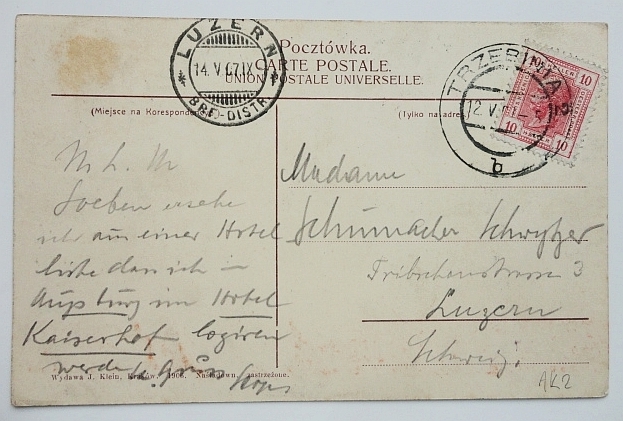 LUZERN
14.V.07.IX
BRF.-DISTR.
Pocztówka.
CARTE POSTALE.
UNION POSTALE UNIVERSELLE.
TRZEBINIA
12.V.
b
10 10
10 10
(Miejsce na Korespondencyę)
(Tylko na adres)
Soeben ersehe
ich aus einer Hotel
liste dass ich in
Augsburg im Hotel
Kaiserhof logiren
werde. Gruss
Madame
Schumacher Schwytzer
Tribschenstrasse 3
Luzern
Schweiz.
Wydawa J. Klein, Kraków. 1906. Naśladown. zastrzeżone.
AK2